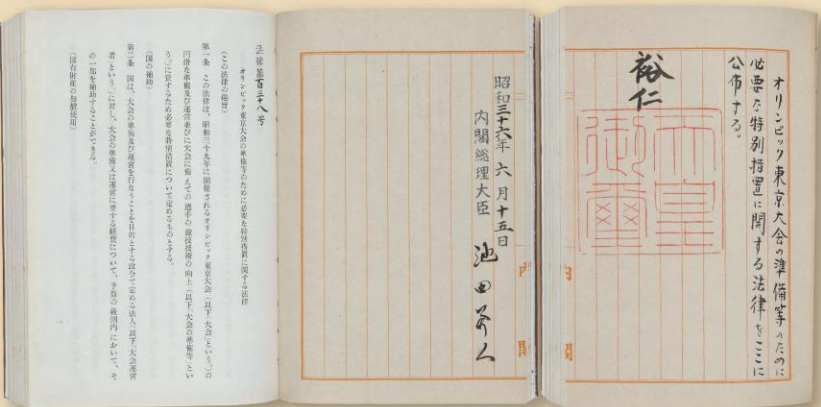 オリンピック東京大会の準備等のために
必要な特別措置に関する法律をここに
公布する。
裕仁
天皇
御璽
昭和三十六年六月十五日
内閣総理大臣 池田勇人
内閣
内閣
法律第百三十八号
オリンピック東京大会の準備等のために必要な特別措置に関する法律
(この法律の趣旨)
第一条 この法律は、昭和三十九年に開催されるオリンピック東京大会(以下「大会」という。)の
円滑な準備及び運営並びに大会に備えての選手の競技技術の向上(以下「大会の準備等」とい
う。)に資するため必要な特別措置について定めるものとする。
(国の補助)
第二条 国は、大会の準備及び運営を行なうことを目的とする政令で定める法人(以下「大会運営
者」という。)に対し、大会の準備又は運営に要する経費について、予算の範囲内において、そ
の一部を補助することができる。
(国有財産の無償使用)